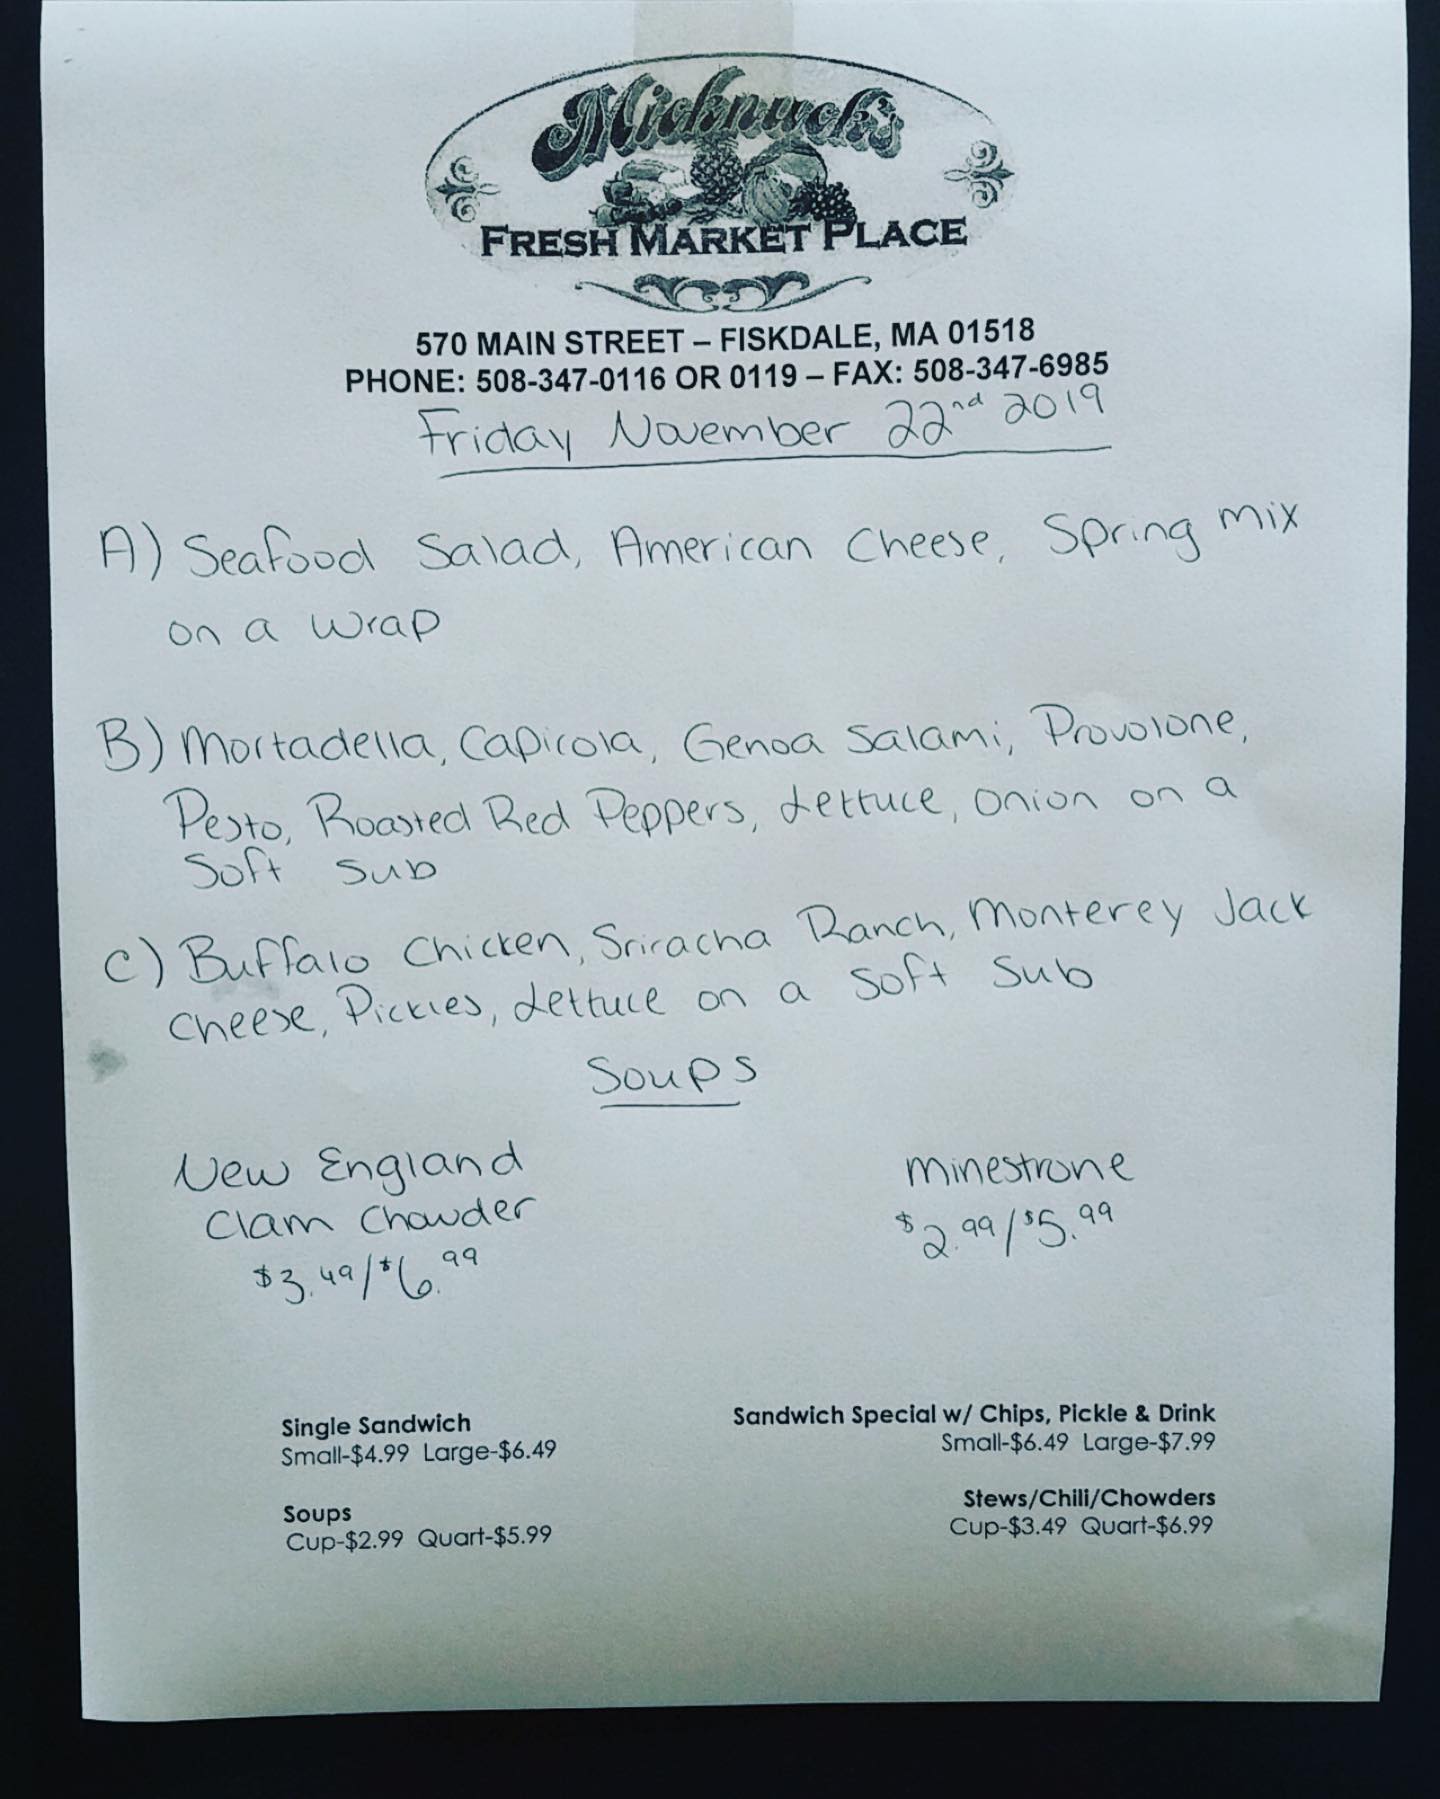 Micknuck's
FRESH MARKET PLACE
570 MAIN STREET – FISKDALE, MA 01518
PHONE: 508-347-0116 OR 0119 – FAX: 508-347-6985
Friday November 22nd 2019
A) Seafood Salad, American Cheese, Spring mix
on a wrap
B) Mortadella, Capicola, Genoa Salami, Provolone,
Pesto, Roasted Red Peppers, Lettuce, onion on a
Soft Sub
C) Buffalo Chicken, Sriracha Ranch, Monterey Jack
Cheese, Pickles, Lettuce on a Soft Sub
Soups
New England
Clam Chowder
$3.49/$6.99
minestrone
$2.99/$5.99
Single Sandwich
Small-$4.99 Large-$6.49
Sandwich Special w/ Chips, Pickle & Drink
Small-$6.49 Large-$7.99
Soups
Cup-$2.99 Quart-$5.99
Stews/Chili/Chowders
Cup-$3.49 Quart-$6.99